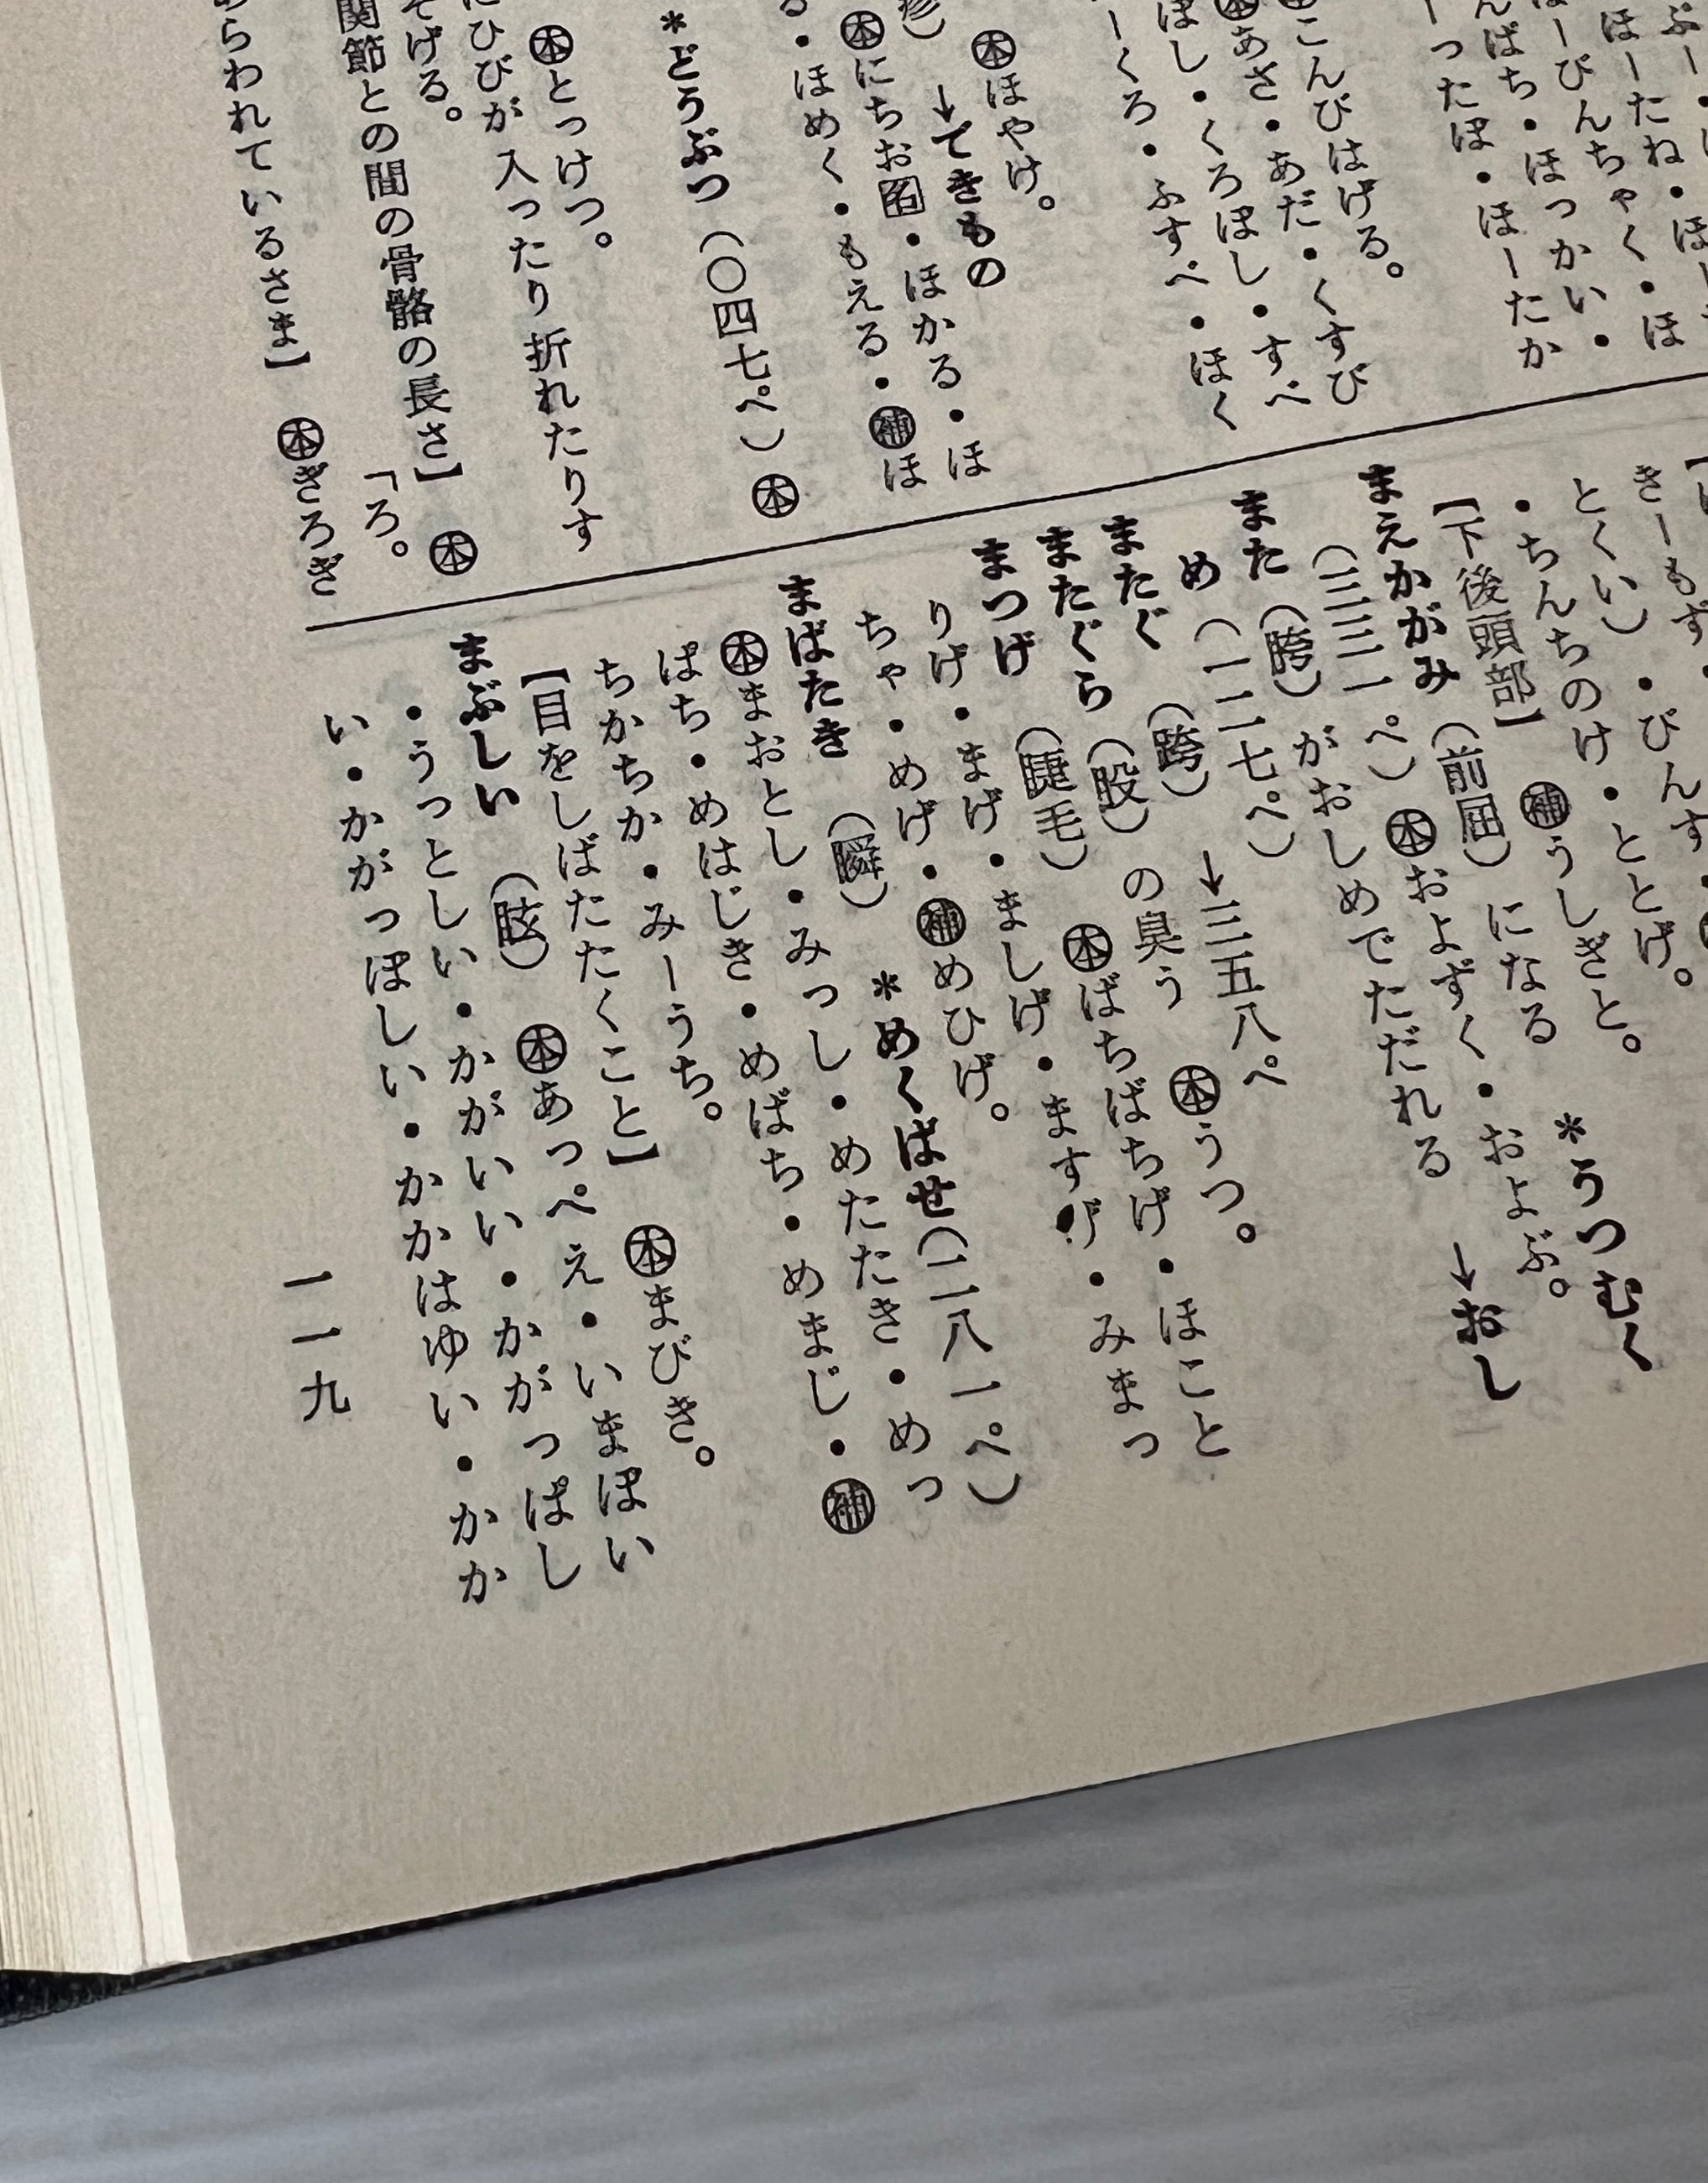 ほーたね・ほー
ほーびんちゃく・ほ
んぱち・ほっかい・
ーったぽ・ほーたか
こんびはげる。
あさ・あだ・くすび
ぼし・くろぼし・すべ
ーくろ・ふすべ・ほく
㊍ほやけ。
疹)→できもの
㊍にちお・ほかる・ほ
る・ほめく・もえる・㊢ほ
*どうぶつ(〇四七ぺ)㊍
㊍とっけつ。
にひびが入ったり折れたりす
そげる。「ろ。
関節との間の骨骼の長さ】㊍
らわれているさま】㊍ぎろぎ
きーもす・びんす
とくい)・ちんちのけ・ととげ。
【下後頭部】㊢うしぎと。
*うつむく
まえかがみ(前屈)になる
(三三一ぺ)㊍およずく・およぶ。
また(胯)がおしめでただれる→おし
め(一二七ぺ)
またぐ(跨)→三五八ぺ
またぐら(股)の臭う㊍うつ。
まつげ(睫毛)㊍ばちばちげ・ほこと
りげ・まげ・ましげ・ますげ・みまつ
ちゃ・めげ・㊢めひげ。
まばたき(瞬)*めくばせ(二八一ぺ)
㊍まおとし・みつし・めたたき・めっ
ぱち・めはじき・めばち・めまじ・㊢
ちかちか・みーうち。
【目をしばたたくこと】㊍まびき。
まぶしい(眩)㊍あっぺえ・いまぽい
・うっとしい・かがいい・かがっぱし
い・かがっぽしい・かかはゆい・かか
一一九